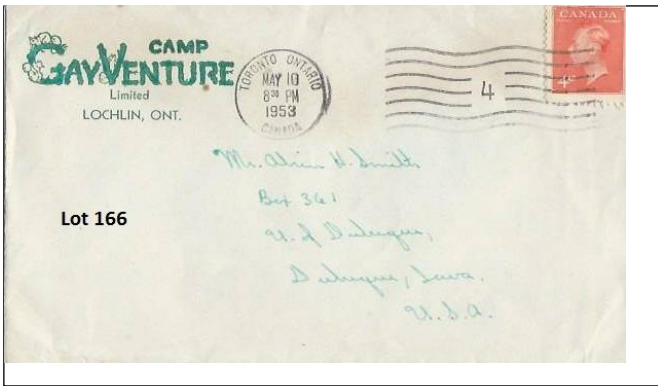 CAMP
GAY VENTURE
Limited
LOCHLIN, ONT.
TORONTO ONTARIO
MAY 10
8³⁰ PM
1953
CANADA
4
CANADA
4
Lot 166
Mr. Alvin H. Smith
Box 361
U. of Dubuque,
Dubuque, Iowa.
U.S.A.